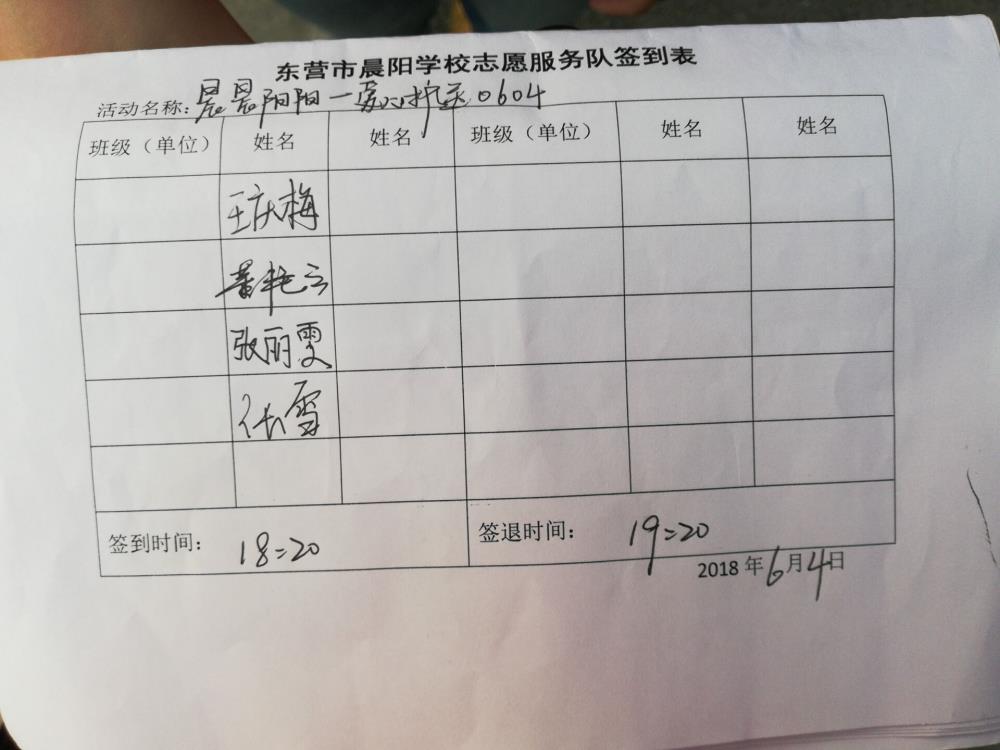 东营市晨阳学校志愿服务队签到表
活动名称：晨晨阳阳一爱心护送0604
班级（单位） 姓名 姓名 班级（单位） 姓名 姓名
王庆梅
董艳云
张丽雯
任雪
签到时间： 18:20 签退时间： 19:20
2018年6月4日